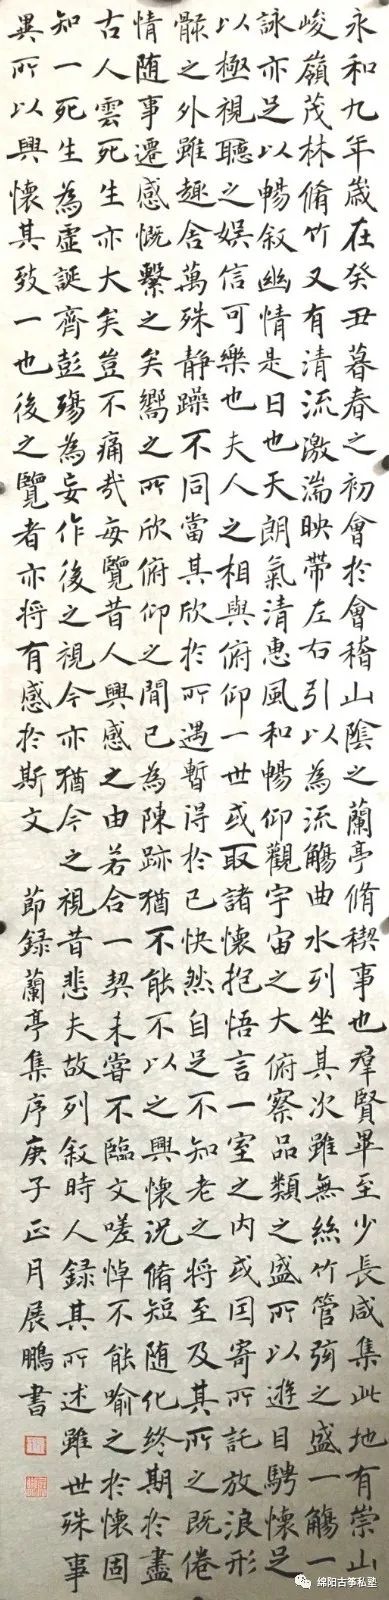 永和九年歲在癸丑暮春之初會於會稽山陰之蘭亭脩稧事也羣賢畢至少長咸集此地有崇山
峻嶺茂林脩竹又有清流激湍映帶左右引以為流觴曲水列坐其次雖無絲竹管弦之盛一觴一
詠亦足以暢叙幽情是日也天朗氣清惠風和暢仰觀宇宙之大俯察品類之盛所以遊目騁懷足
以極視聽之娛信可樂也夫人之相與俯仰一世或取諸懷抱悟言一室之内或因寄所託放浪形
骸之外雖趣舍萬殊静躁不同當其欣於所遇暫得於己快然自足不知老之將至及其所之既倦
情随事遷感慨繫之矣嚮之所欣俯仰之間已為陳跡猶不能不以之興懷況脩短随化終期於盡
古人雲死生亦大矣豈不痛哉每覽昔人興感之由若合一契未嘗不臨文嗟悼不能喻之於懷固
知一死生為虛誕齊彭殤為妄作後之視今亦猶今之視昔悲夫故列叙時人録其所述雖世殊事
異所以興懷其致一也後之覽者亦将有感於斯文 節録蘭亭集序庚子正月展鵬書
绵阳古筝私塾